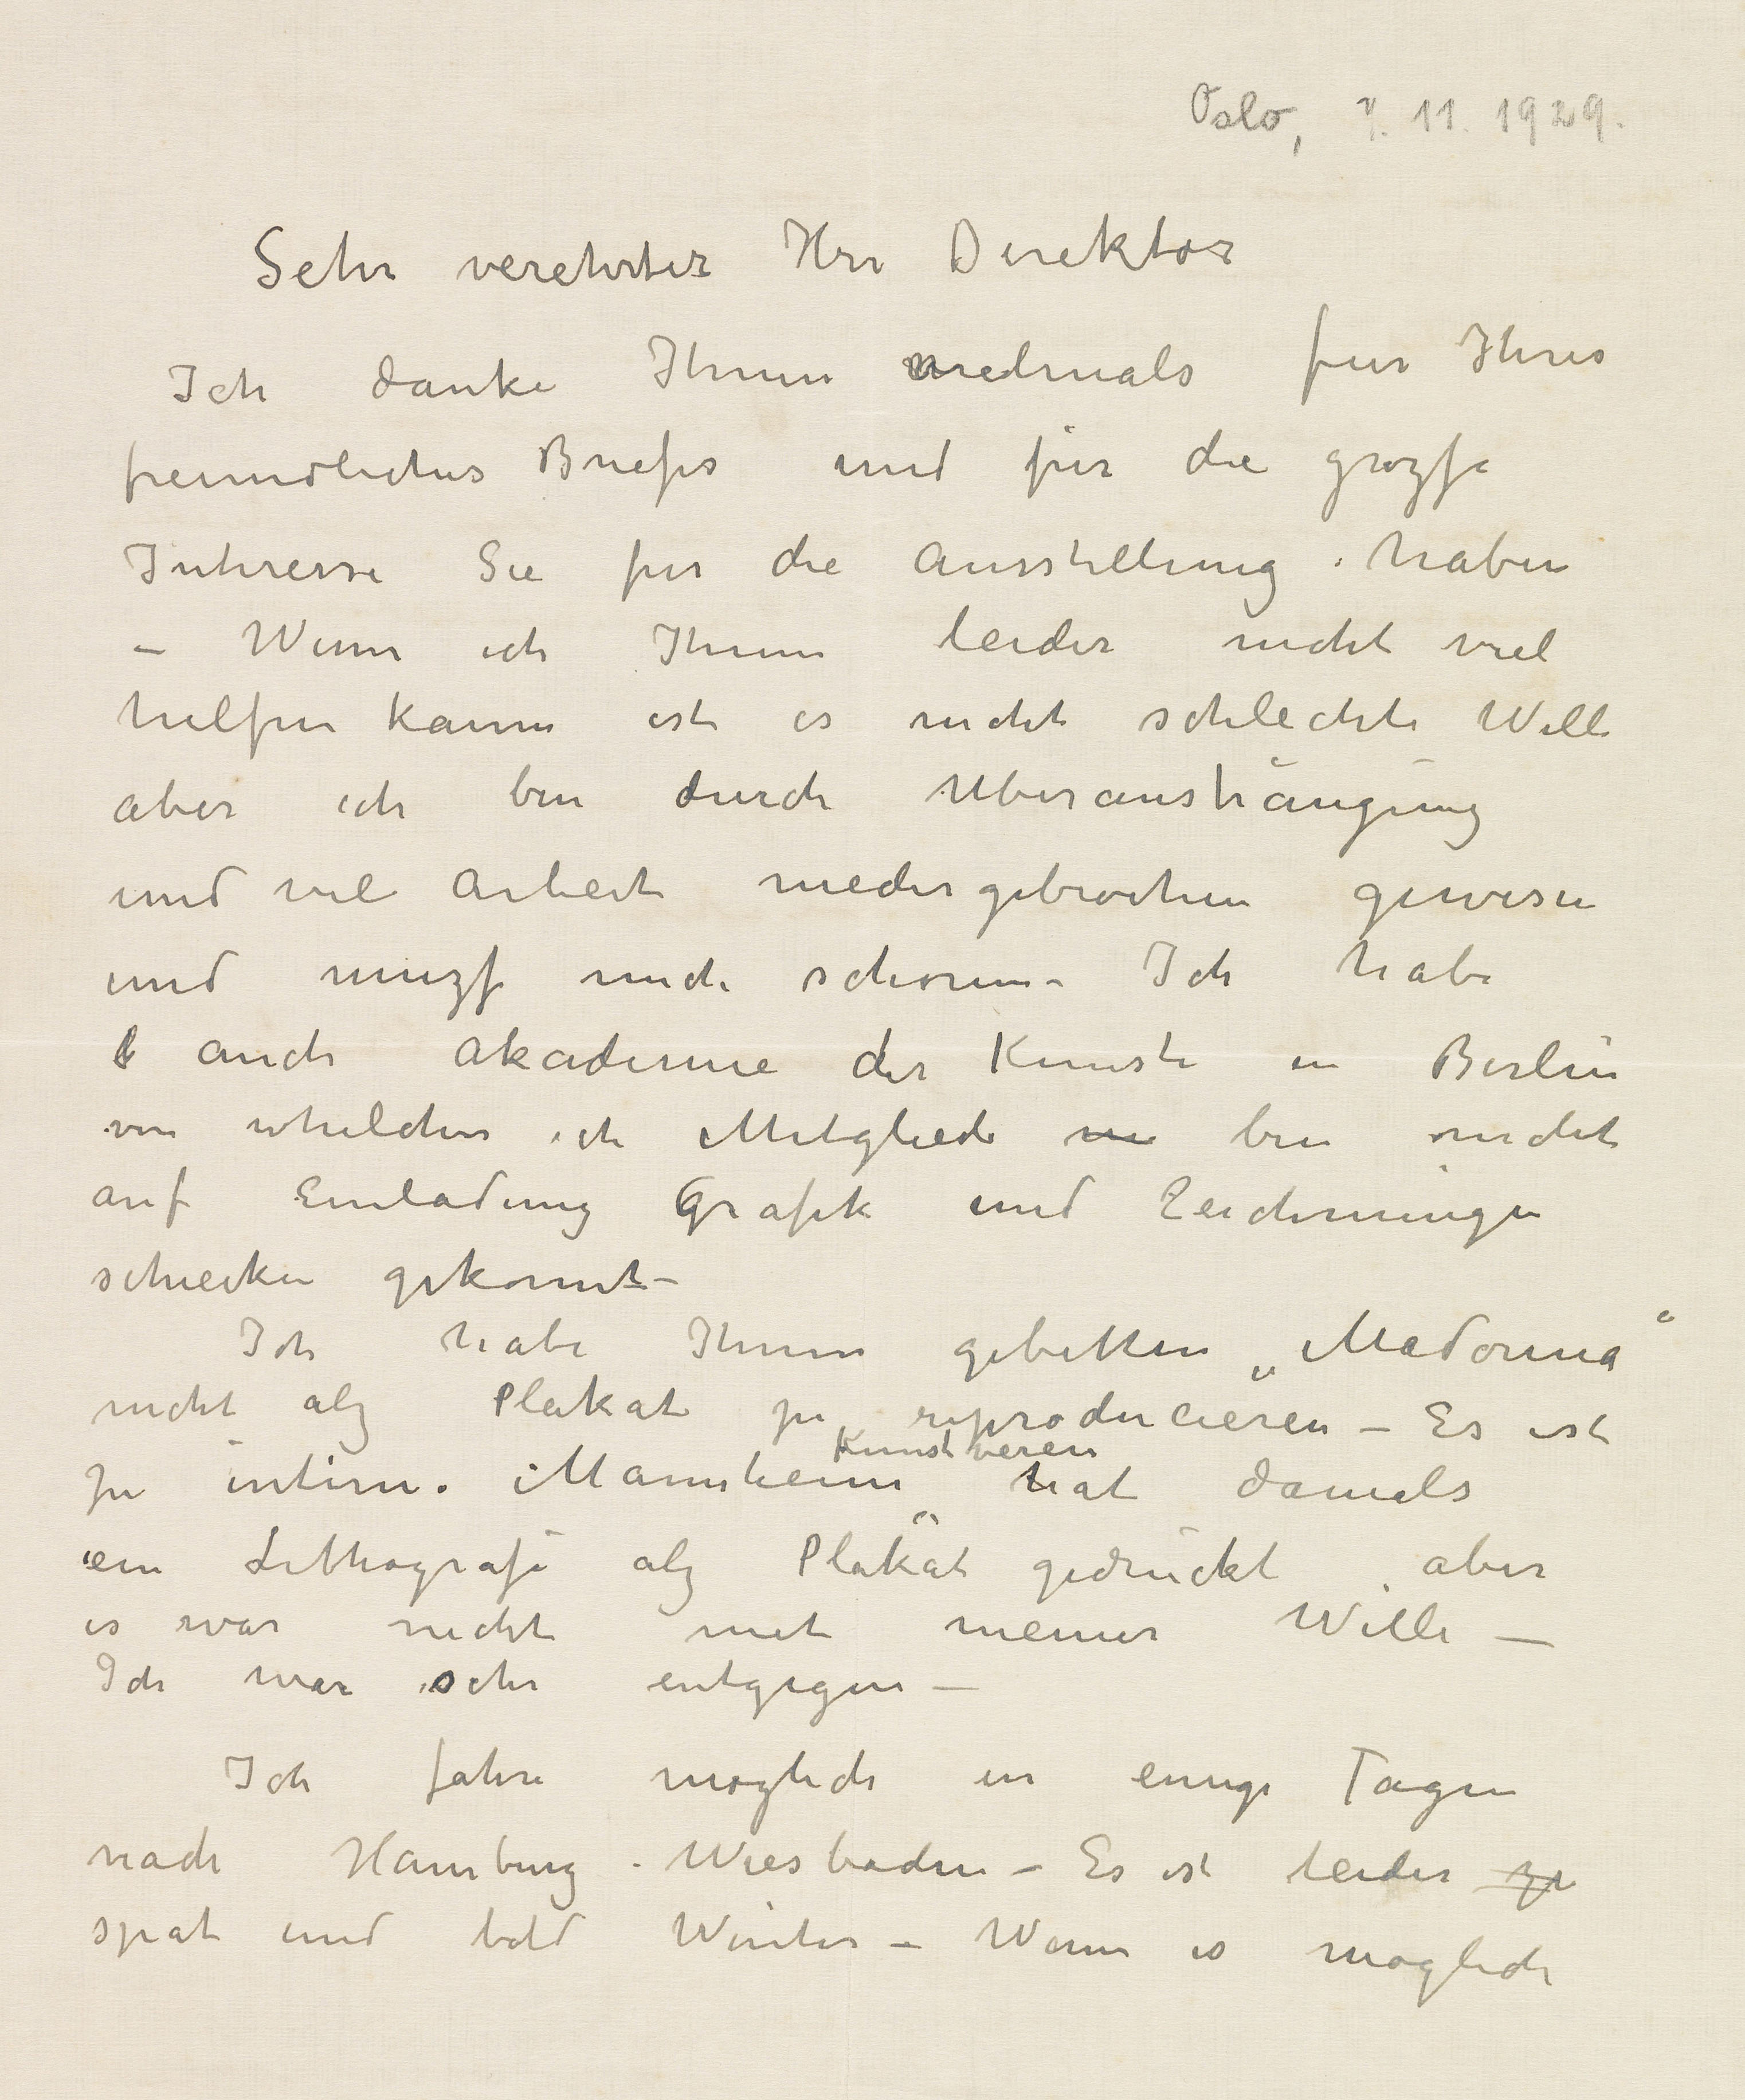 Oslo, 7. 11. 1929.
Sehr verehrter Herr Direktor
Ich danke Ihnen mehrmals fur Ihres
freundliches Briefes und für die grozfe
Interesse Sie fur die Ausstellung haben
– Wenn ich Ihnen leider nicht viel
helfen kann ist es nicht schlechte Wille
aber ich bin durch Uberansträngung
und viel Arbeit niedergebrochen gewesen
und muzf mich schonen – Ich habe
auch Akademie der Kunste in Berlin
von whelchen ich Mitglied bin nicht
auf Einladung Grafik und Zeichnungen
schicken gekonnt –
Ich habe Ihnen gebitten „Madonna"
nicht alz Plakat zu reproducieren – Es ist
zu intim. Mannheim Kunstverein hat damals
ein Lithografi alz Plakat gedruckt aber
es war nicht mit meiner Wille –
Ich war sehr entgegen –
Ich fahre moglich in einige Tagen
nach Hamburg. Wiesbaden – Es ist leider zu
spat und bald Winter – Wenn es moglich